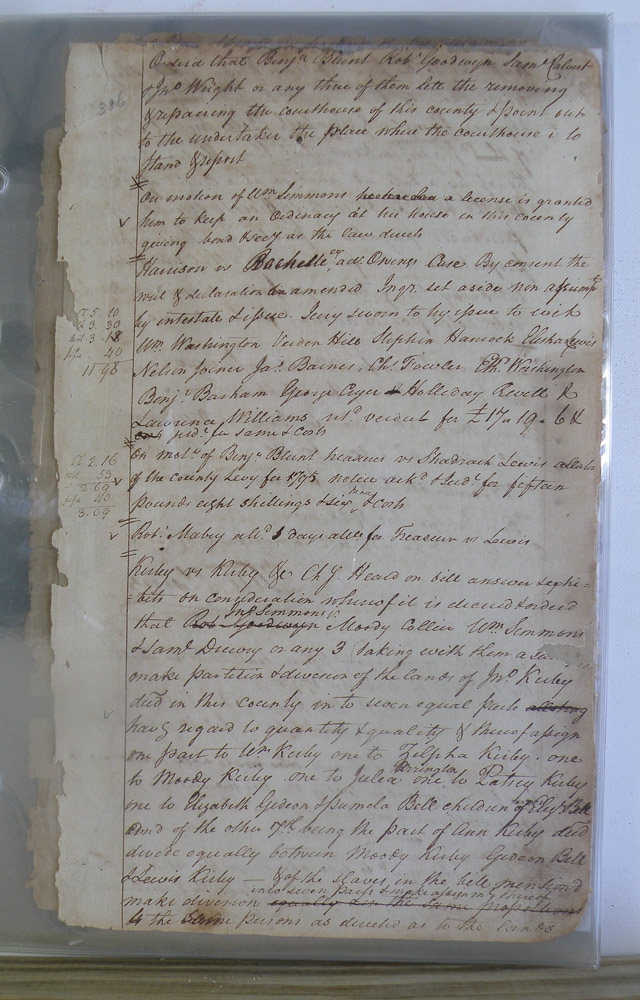 Ordered that Benjn Blunt Robt Goodwyn Saml Calvert
& Jno Wright or any three of them lett the removing
& repairing the courthouse of this county & point out
to the undertaker the place where the courthouse is to
stand & report
On motion of Wm Simmons a license is granted
him to keep an Ordinary at his house in this county
giving bond & secy as the law directs
Harrison vs Rachelle exr adt Owens Case By consent the
writ & declaration amended Inqr set aside non assumt
by intestate & issue. Jury sworn to try issue to wit
Wm Washington Verdon Hill Stephen Hancock Elisha Lewis
Nelson Joiner Jas Baines, Chs Fowler Eth. Washington
Benja Barham George Holliday Revell &
Lawrence Williams retd verdict for £17.19.6 &
judt for same & Costs
Cl 5.10
3.30
3.18
40
11 98
On motn of Benjn Blunt treasurer vs Shadrach Lewis
of the County Levy for 1795 notice ackd & Judt for fifteen
pounds eight shillings & six pence & Costs
Cl 2.16
53
2.69
40
3.09
Robt Mabry alld 3 days attce for Treasurer vs Lewis
Kirby vs Kirby &c Chy. Heard on bill answer & exhi=
=bits On consideration whereof it is decreed & ordered
that Rob Goodwyn Jno Simmons Moody Collier Wm Simmons
& Saml Drewry or any 3 (taking with them a
make partition & division of the lands of Jno Kirby
died in this county into seven equal parts allotting
havg regard to quantity & quality & thereof assign
one part to Wm Kirby one to Zilpha Kirby. one
to Moody Kirby one to Julea one to Patsey Kirby
one to Elizabeth Gideon & Pamola Bell children of Bell
and of the other 7th being the part of Ann Kirby died
divide equally between Moody Kirby Gideon Bell
& Lewis Kirby — & of the slaves in the bill mentioned
into seven parts & make assignmt thereof
make division equally & in the same proportions
to the same persons as directed as to the lands
316